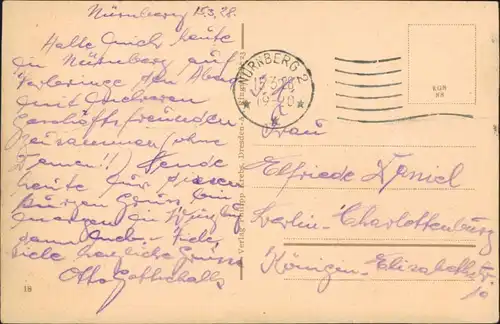 Nürnberg 15.3.28.
Halte mich heute
in Nürnberg auf
verbringe den Abend
mit mehreren
Geschäftsfreunden
zusammen (ohne
Damen!!) Sende
heute nur diesen
kurzen Gruss, bin
morgen in
dann mehr. Viele
viele herzliche Grüsse
Otto Gottschalk
NÜRNBERG 2
15.3.28
19-20
Frau
Elfriede Daniel
Berlin-Charlottenburg
Königin-Elisabethstr
10
18
Verlag Philipp Krebs, Dresden-A.